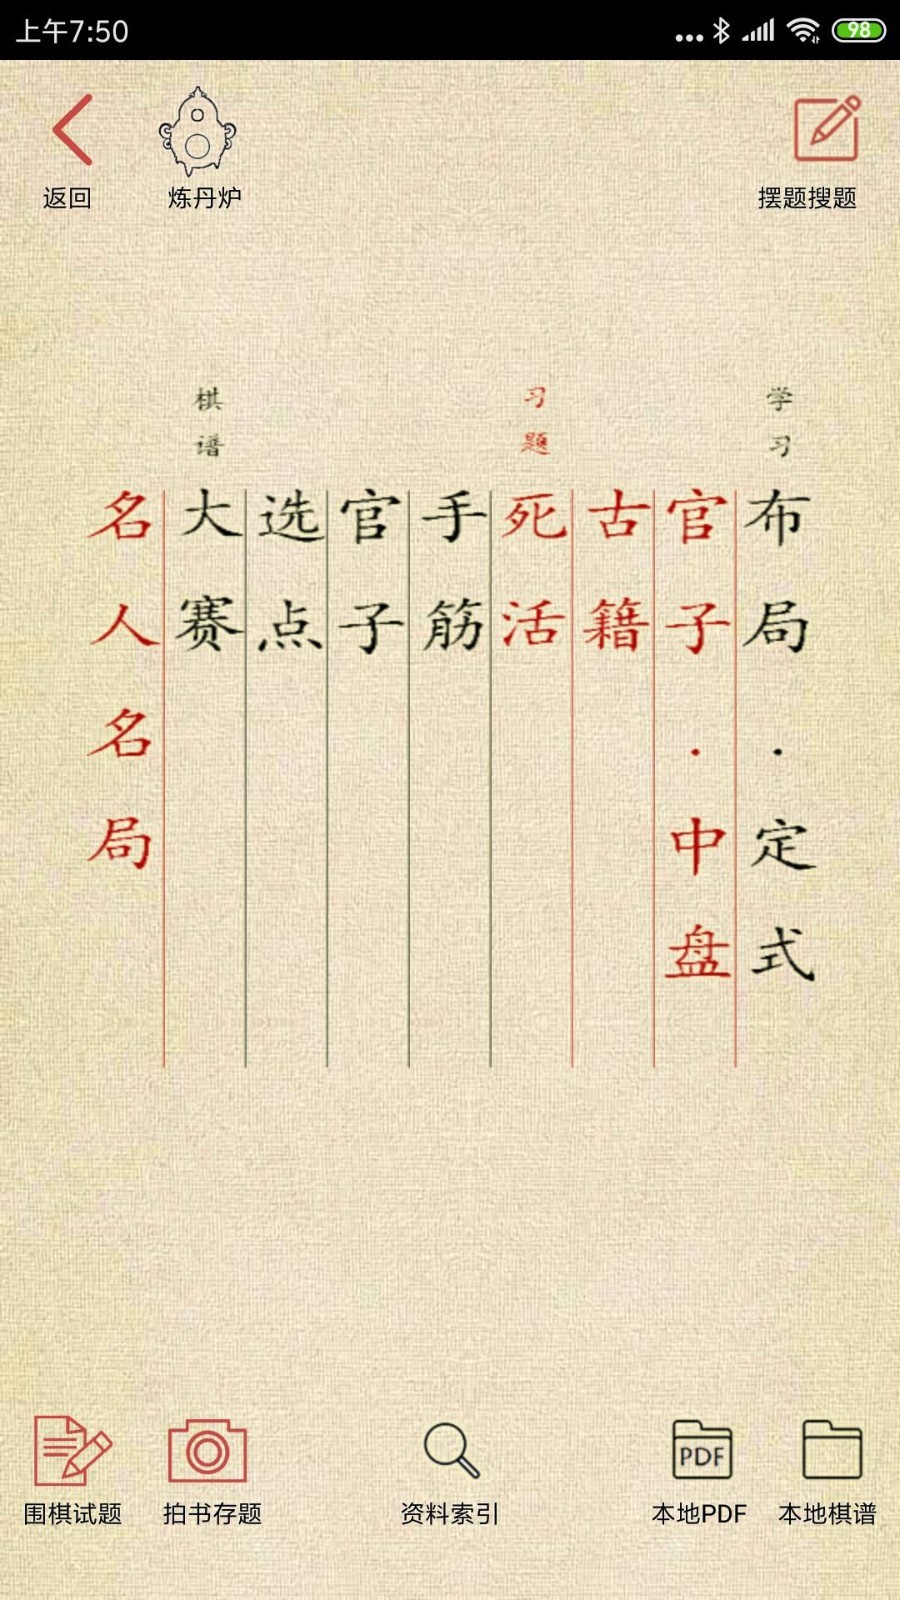 上午7:50
98
返回
炼丹炉
摆题搜题
学习
布局·定式
官子·中盘
古籍
习题
死活
手筋
官子
选点
棋谱
大赛
名人名局
围棋试题
拍书存题
资料索引
PDF
本地PDF
本地棋谱